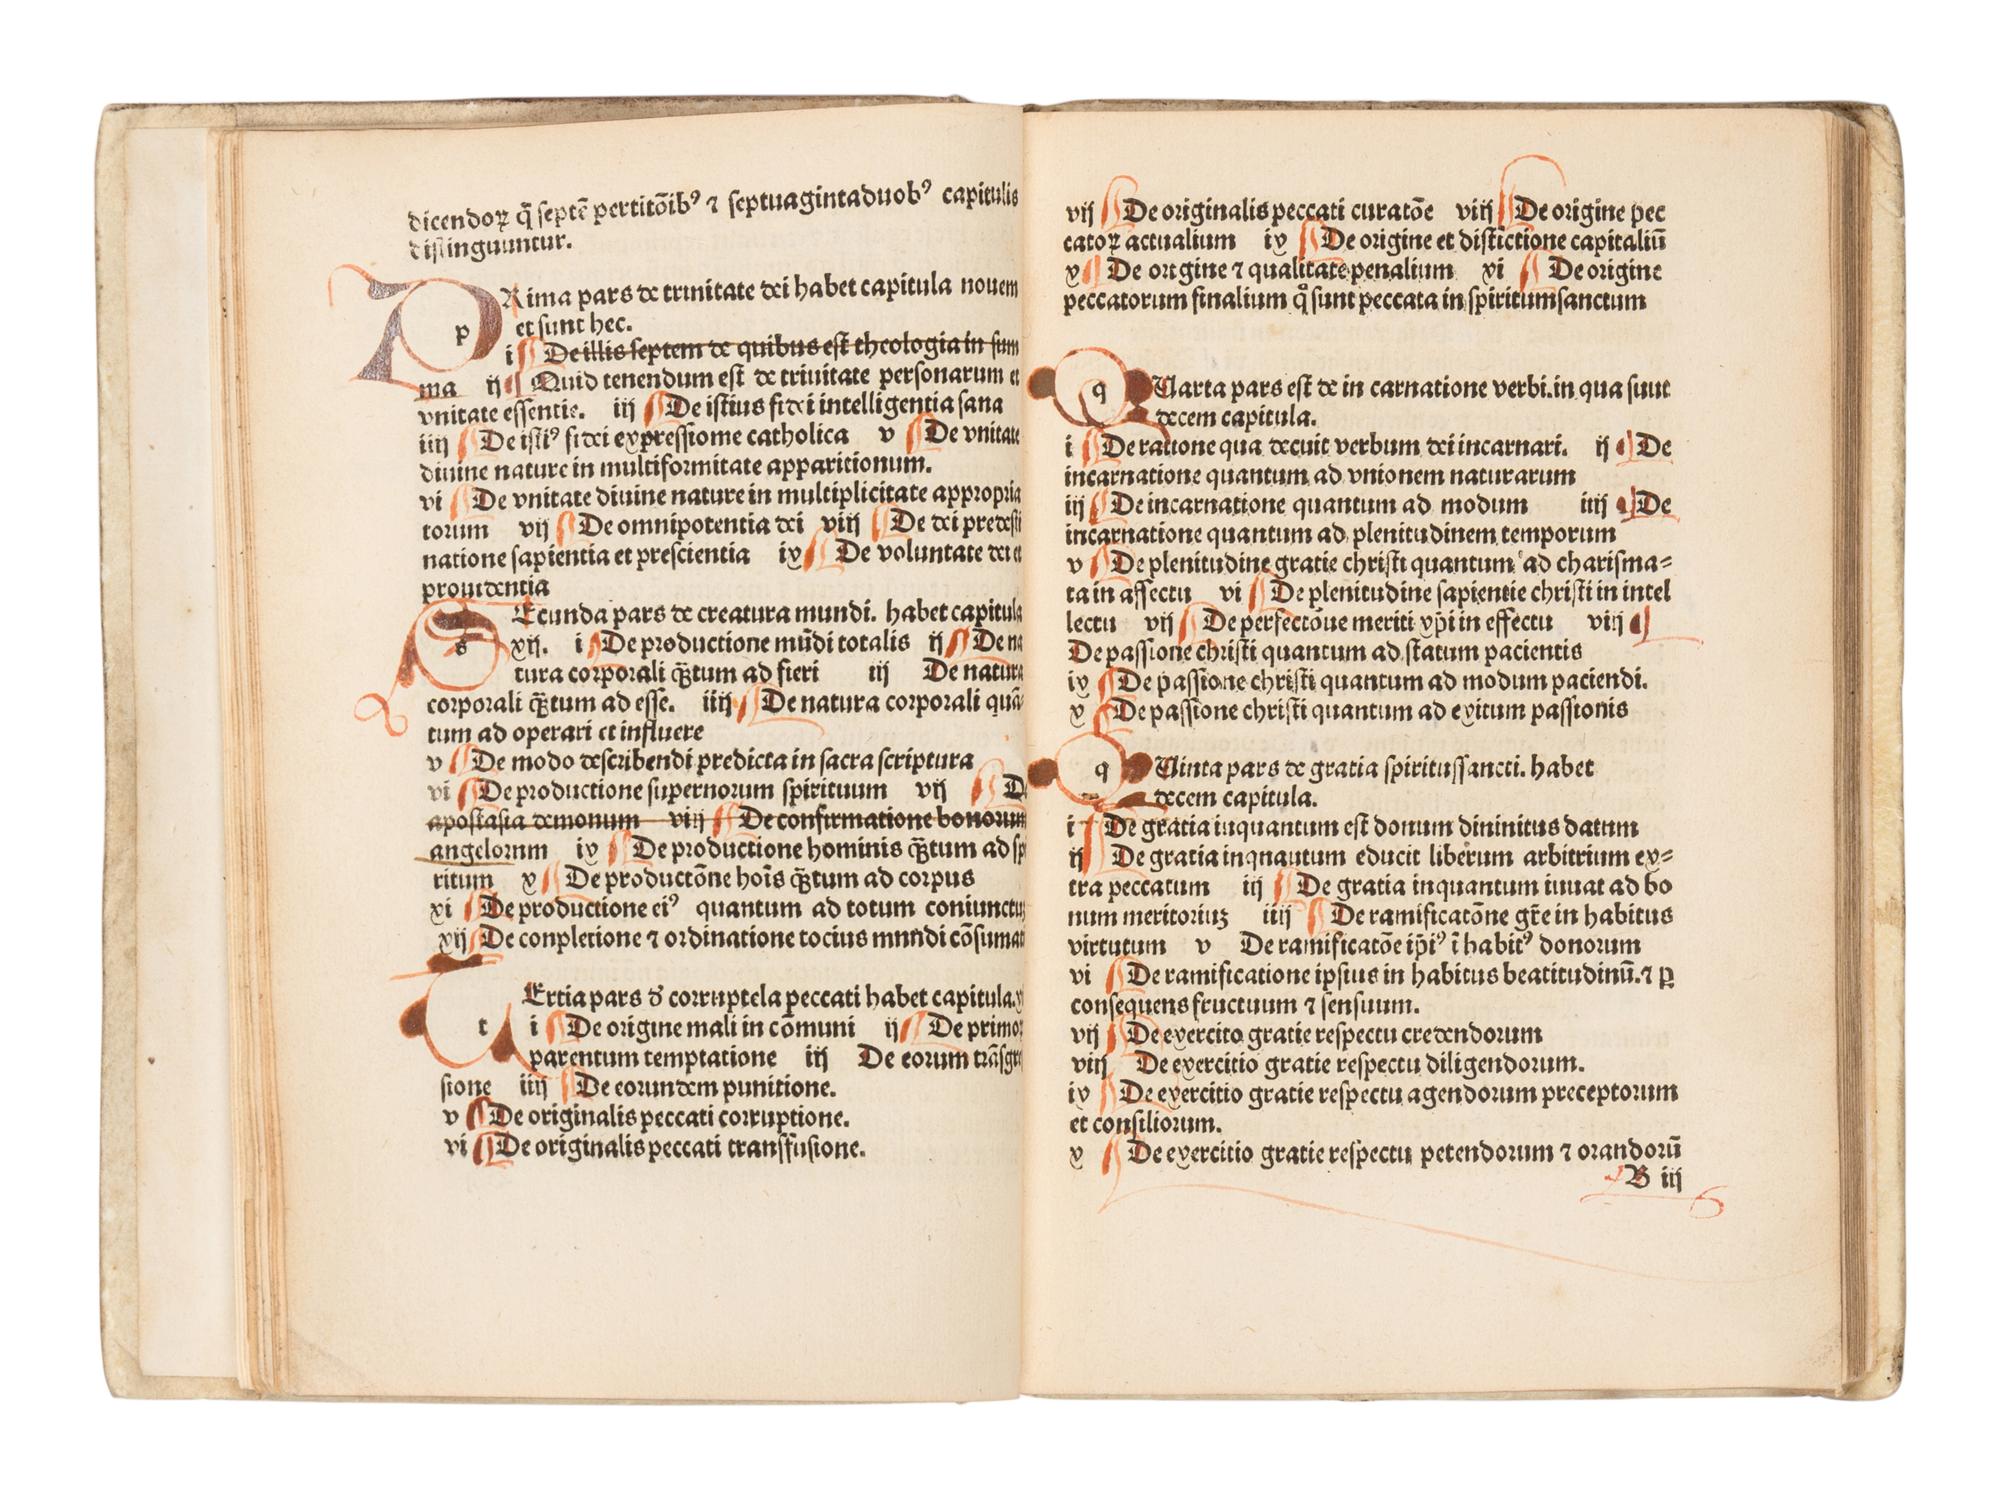 dicendoꝝ q̄ septē pertitōibꝰ ⁊ septuagintaduobꝰ capitulis
distinguuntur.
p Rima pars de trinitate dei habet capitula nouem
et sunt hec.
i De illis septem de quibus est theologia in sum
ma ij Quid tenendum est de triuitate personarum et
vnitate essentie. iij De istius fidei intelligentia sana
iiij De istiꝰ fidei expressiome catholica v De vnitate
diuine nature in multiformitate apparitionum.
vi De vnitate diuine nature in multiplicitate appropria
torum vij De omnipotentia dei viij De dei predesti
natione sapientia et prescientia ix De voluntate dei et
prouidentia
s Ecunda pars de creatura mundi. habet capitula
xij. i De productione mūdi totalis ij De na
tura corporali q̄tum ad fieri iij De natura
corporali q̄tum ad esse. iiij De natura corporali quā
tum ad operari et influere
v De modo describendi predicta in sacra scriptura
vi De productione supernorum spirituum vij De
apostasia demonum viij De confirmatione bonorum
angelorum ix De productione hominis q̄tum ad spi
ritum x De productōne hoīs q̄tum ad corpus
xi De productione eiꝰ quantum ad totum coniunctuꝫ
xij De conpletione ⁊ ordinatione tocius mnndi cōsumati
t Ertia pars ꝺ̄ corruptela peccati habet capitula.
i De origine mali in cōmuni ij De primoꝝ
parentum temptatione iij De eorum trāsgre
sione iiij De eorundem punitione.
v De originalis peccati corruptione.
vi De originalis peccati transfusione.
vij De originalis peccati curatōe viij De origine pec
catoꝝ actualium ix De origine et distictione capitaliū
x De origine ⁊ qualitate penalium xi De origine
peccatorum finalium q̊ sunt peccata in spiritumsanctum
q Uarta pars est de in carnatione verbi. in qua suut
decem capitula.
i De ratione qua decuit verbum dei incarnari. ij De
incarnatione quantum ad vnionem naturarum
iij De incarnatione quantum ad modum iiij De
incarnatione quantum ad plenitudinem temporum
v De plenitudine gratie christi quantum ad charisma⸗
ta in affectu vi De plenitudine sapientie christi in intel
lectu vij De perfectōue meriti xp̄i in effectu viij
De passione christi quantum ad statum pacientis
ix De passione christi quantum ad modum paciendi.
x De passione christi quantum ad exitum passionis
q Uinta pars de gratia spiritussancti. habet
decem capitula.
i De gratia inquantum est donum dininitus datum
ij De gratia inqnautum educit liberum arbitrium ex⸗
tra peccatum iij De gratia inquantum iuuat ad bo
num meritoriuꝫ iiij De ramificatōne gr̄e in habitus
virtutum v De ramificatōe ip̄iꝰ ī habitꝰ donorum
vi De ramificatione ipsius in habitus beatitudinū. ⁊ ꝑ
consequens fructuum ⁊ sensuum.
vij De exercito gratie respectu credendorum
viij De exercitio gratie respectu diligendorum.
ix De exercitio gratie respectu agendorum preceptorum
et consiliorum.
x De exercitio gratie respectu petendorum ⁊ orandorū
B iij